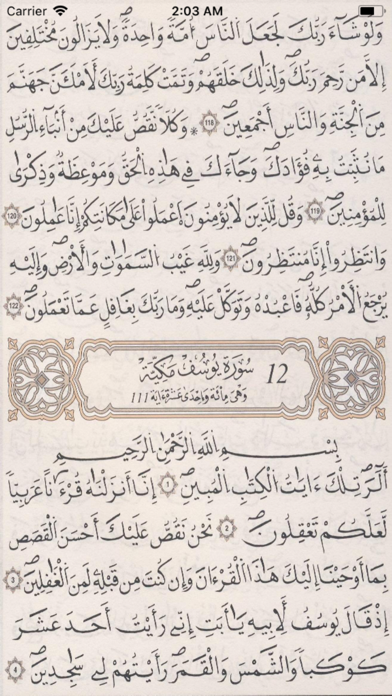 Carrier 2:03 AM
وَلَوْ شَآءَ رَبُّكَ لَجَعَلَ ٱلنَّاسَ أُمَّةً وَٰحِدَةً وَلَا يَزَالُونَ مُخْتَلِفِينَ
إِلَّا مَن رَّحِمَ رَبُّكَ وَلِذَٰلِكَ خَلَقَهُمْ وَتَمَّتْ كَلِمَةُ رَبِّكَ لَأَمْلَأَنَّ جَهَنَّمَ
مِنَ ٱلْجِنَّةِ وَٱلنَّاسِ أَجْمَعِينَ 118 * وَكُلًّا نَّقُصُّ عَلَيْكَ مِنْ أَنۢبَآءِ ٱلرُّسُلِ
مَا نُثَبِّتُ بِهِۦ فُؤَادَكَ وَجَآءَكَ فِى هَٰذِهِ ٱلْحَقُّ وَمَوْعِظَةٌ وَذِكْرَىٰ
لِلْمُؤْمِنِينَ 119 وَقُل لِّلَّذِينَ لَا يُؤْمِنُونَ ٱعْمَلُوا۟ عَلَىٰ مَكَانَتِكُمْ إِنَّا عَٰمِلُونَ 120
وَٱنتَظِرُوٓا۟ إِنَّا مُنتَظِرُونَ 121 وَلِلَّهِ غَيْبُ ٱلسَّمَٰوَٰتِ وَٱلْأَرْضِ وَإِلَيْهِ
يُرْجَعُ ٱلْأَمْرُ كُلُّهُۥ فَٱعْبُدْهُ وَتَوَكَّلْ عَلَيْهِ وَمَا رَبُّكَ بِغَٰفِلٍ عَمَّا تَعْمَلُونَ 122
12 سُورَةُ يُوسُفَ مَكِّيَّةٌ
وَهْىَ مِائَةٌ وَإِحْدَىٰ عَشْرَةَ ءَايَةً 111
بِسْمِ ٱللَّهِ ٱلرَّحْمَٰنِ ٱلرَّحِيمِ
الٓر تِلْكَ ءَايَٰتُ ٱلْكِتَٰبِ ٱلْمُبِينِ 1 إِنَّآ أَنزَلْنَٰهُ قُرْءَٰنًا عَرَبِيًّا
لَّعَلَّكُمْ تَعْقِلُونَ 2 نَحْنُ نَقُصُّ عَلَيْكَ أَحْسَنَ ٱلْقَصَصِ
بِمَآ أَوْحَيْنَآ إِلَيْكَ هَٰذَا ٱلْقُرْءَانَ وَإِن كُنتَ مِن قَبْلِهِۦ لَمِنَ ٱلْغَٰفِلِينَ 3
إِذْ قَالَ يُوسُفُ لِأَبِيهِ يَٰٓأَبَتِ إِنِّى رَأَيْتُ أَحَدَ عَشَرَ
كَوْكَبًا وَٱلشَّمْسَ وَٱلْقَمَرَ رَأَيْتُهُمْ لِى سَٰجِدِينَ 4